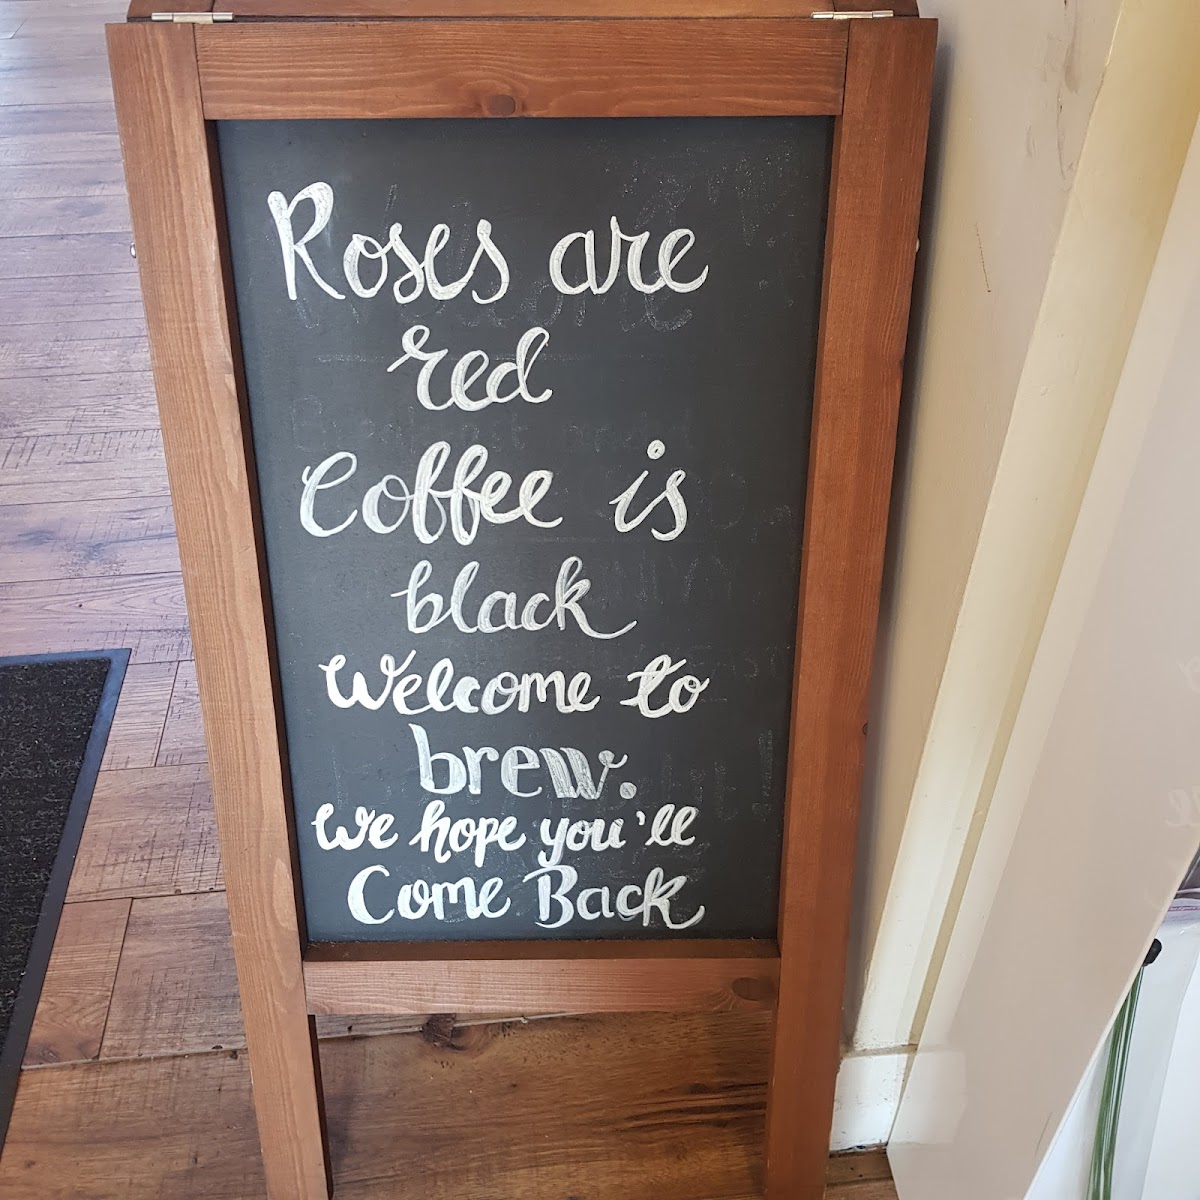 Roses are
red
Coffee is
black
Welcome to
brew.
We hope you'll
Come Back